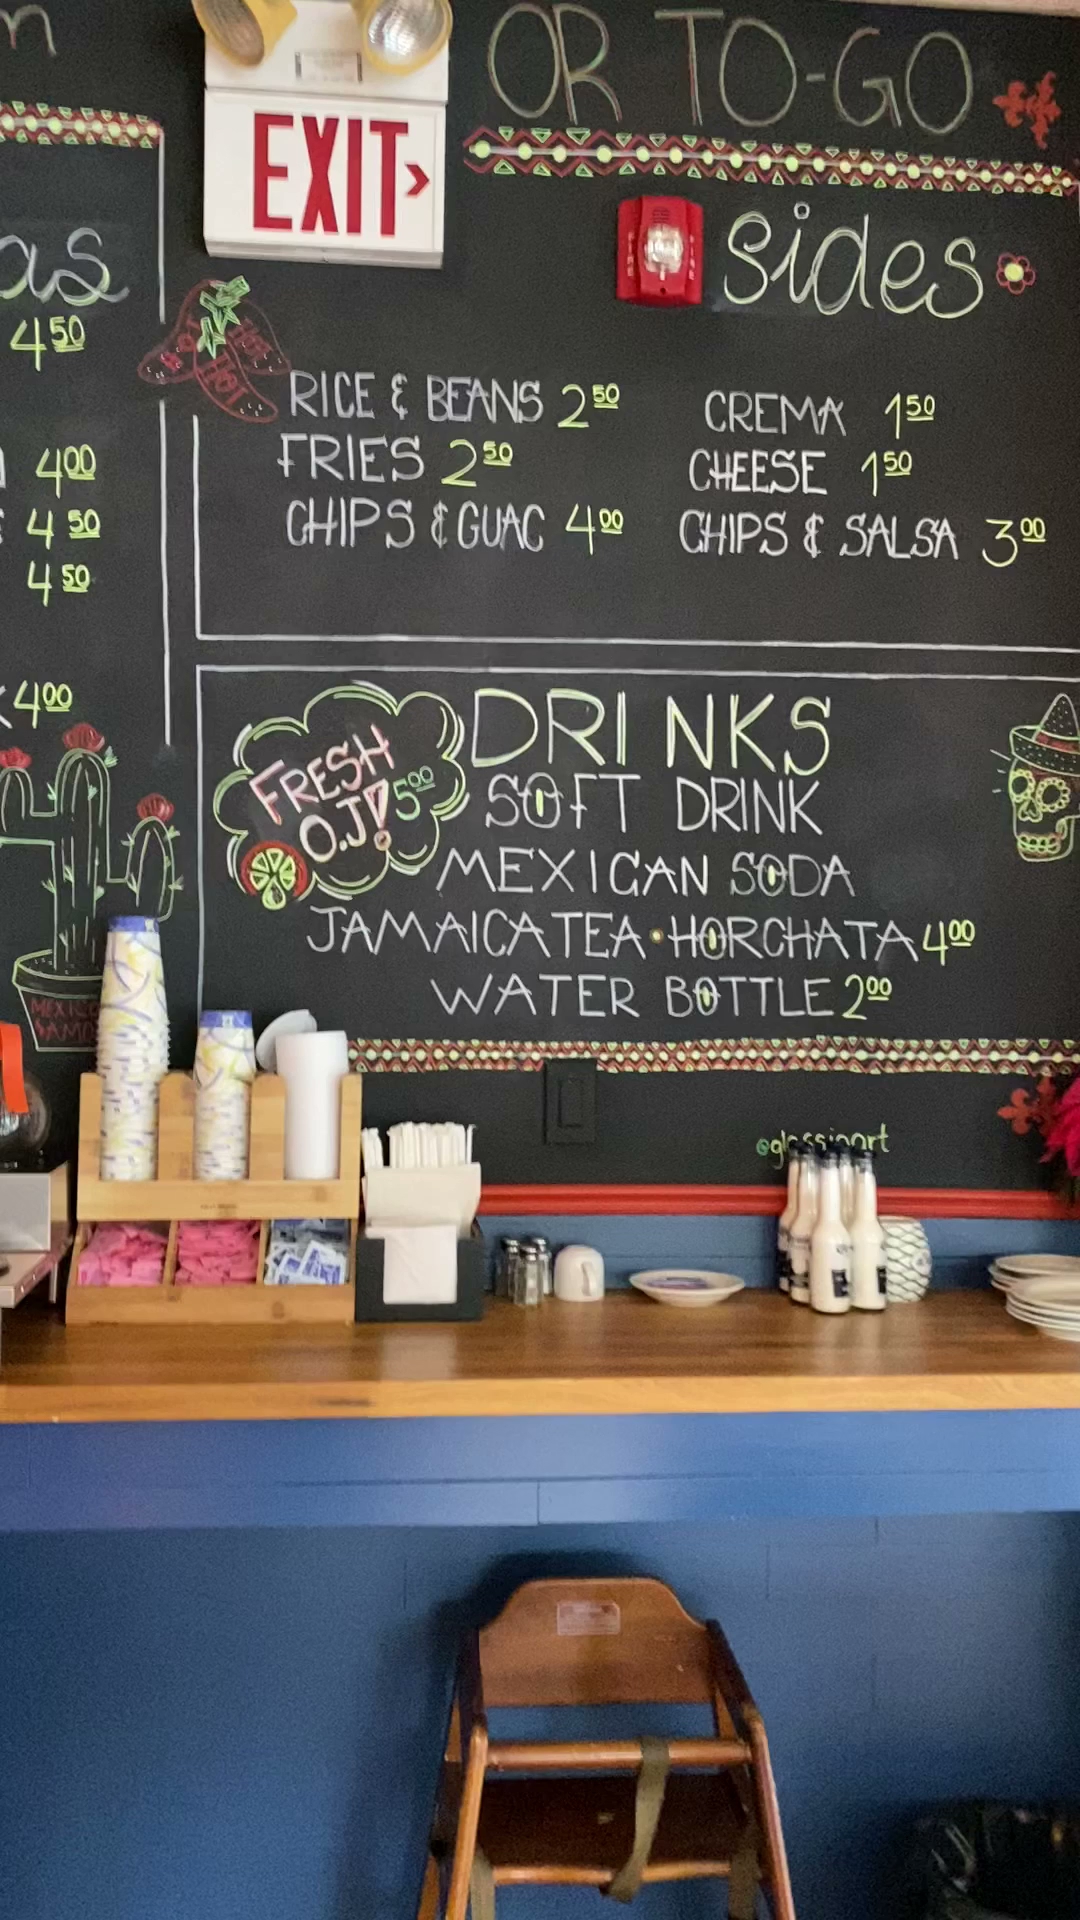 OR TO-GO
EXIT
sides
as
4 50
HOT
RICE & BEANS 2 50
FRIES 2 50
CHIPS & GUAC 4 00
CREMA 1 50
CHEESE 1 50
CHIPS & SALSA 3 00
4 00
4 50
4 50
4 00
FRESH
O.J! 5 00
DRINKS
SOFT DRINK
MEXICAN SODA
JAMAICA TEA • HORCHATA 4 00
WATER BOTTLE 2 00
MEXICO